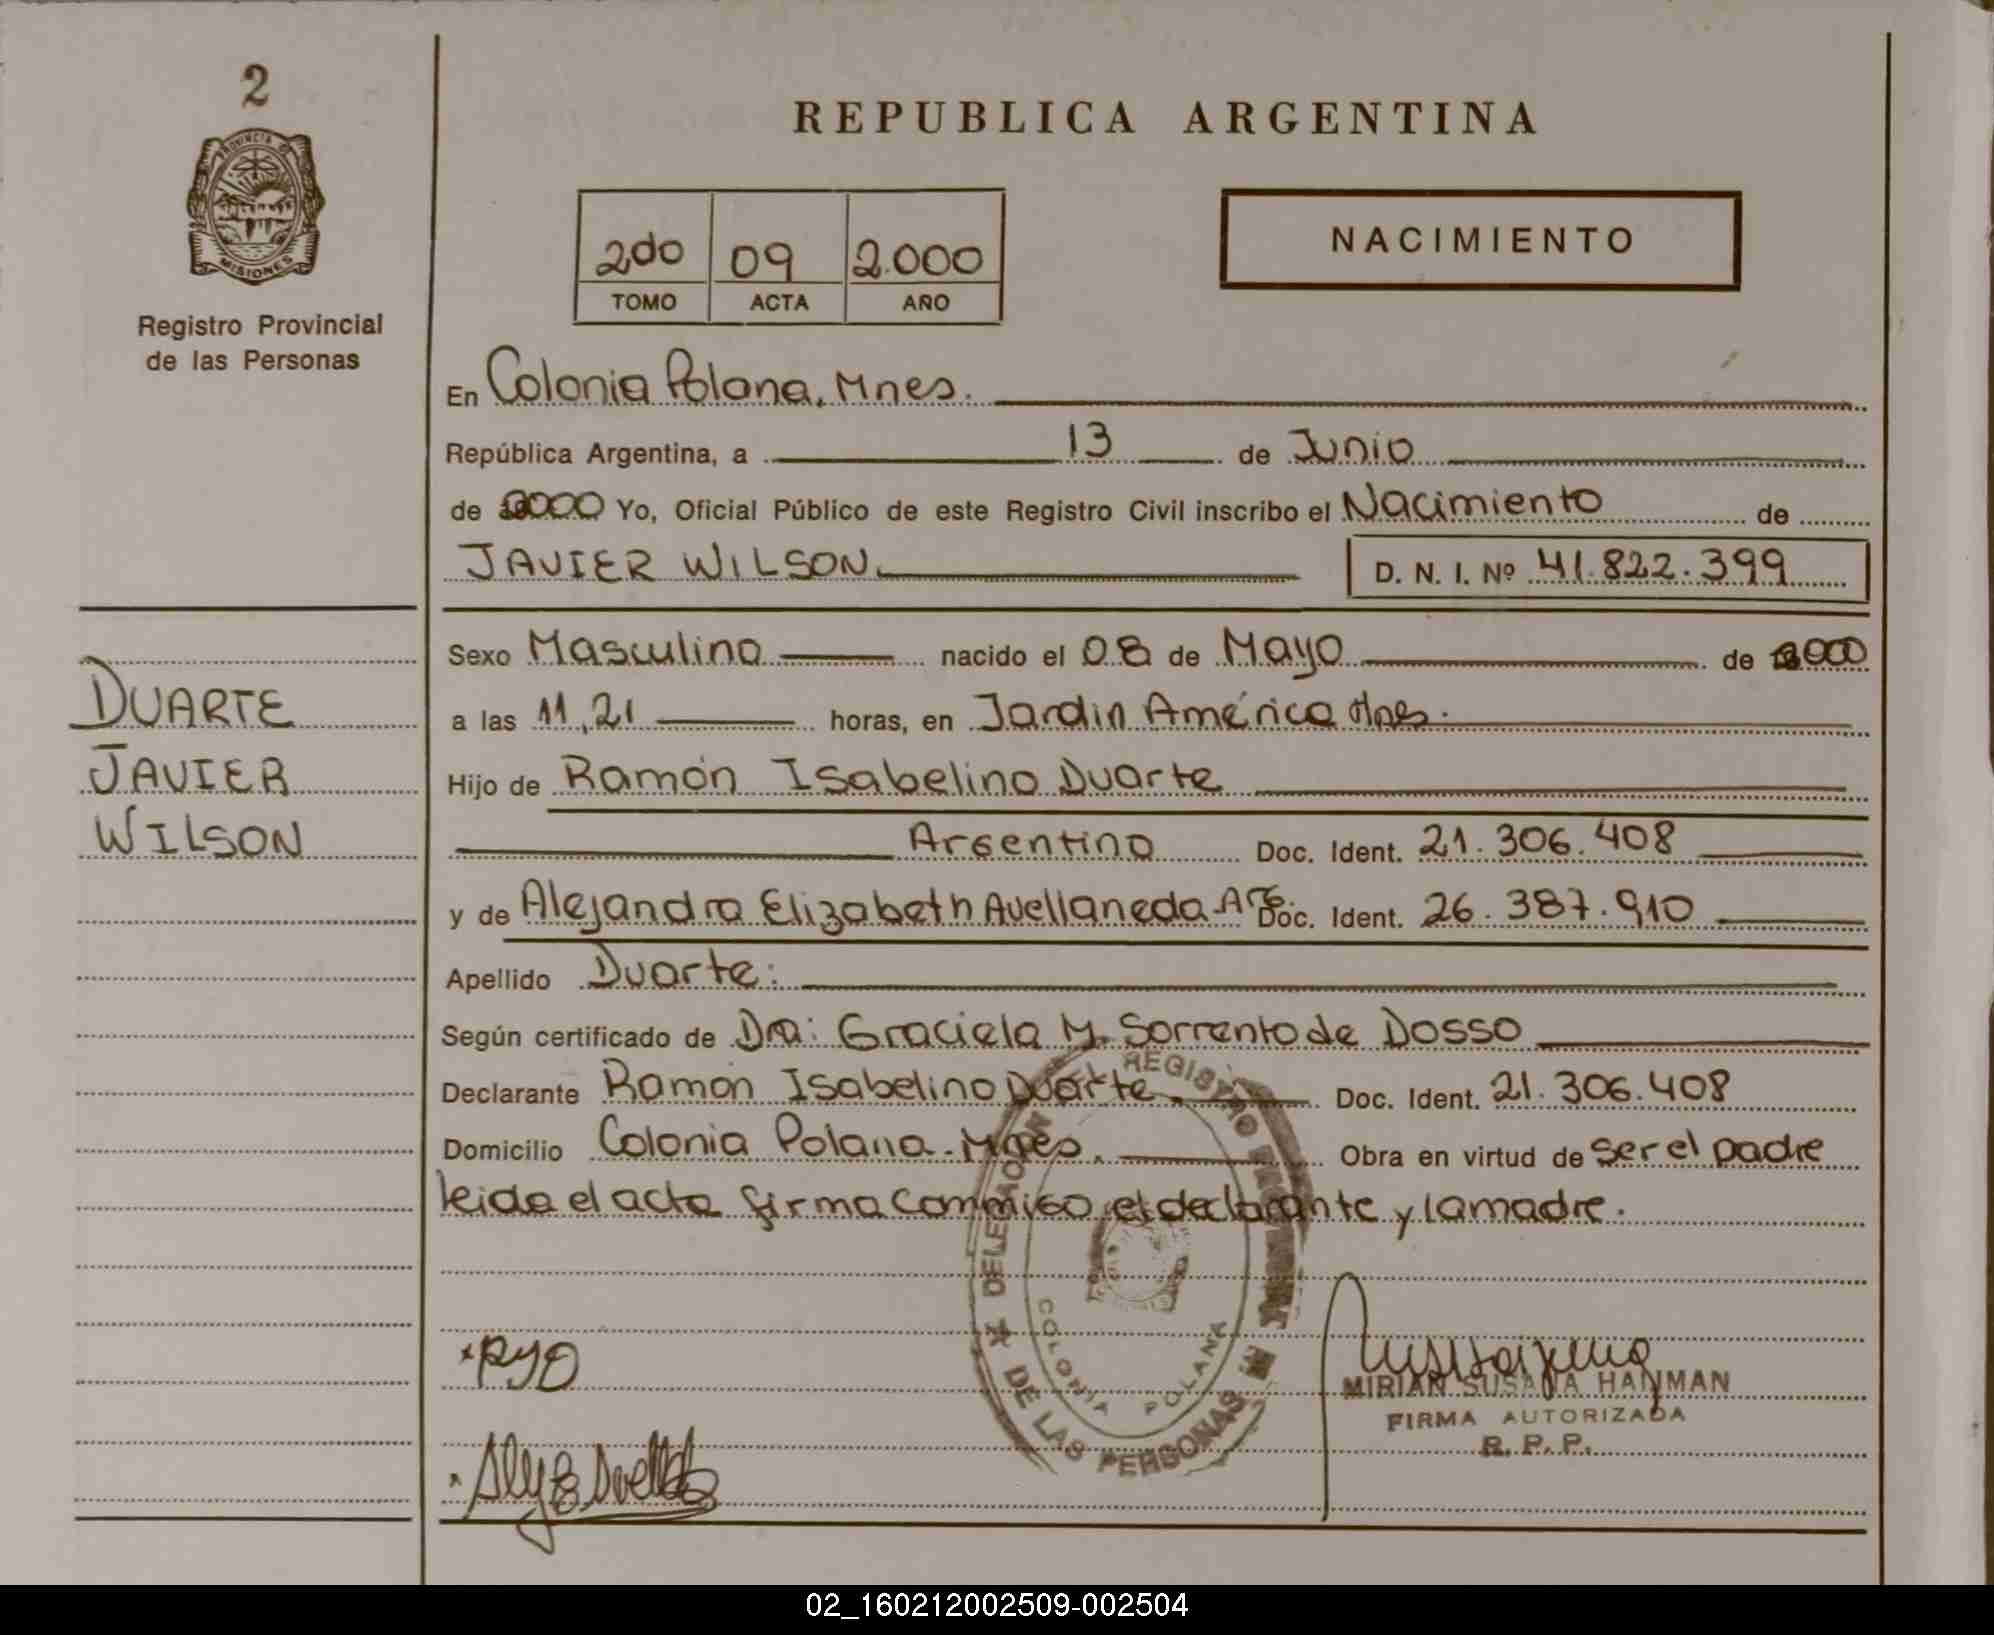 2
PROVINCIA DE
MISIONES
Registro Provincial
de las Personas
DUARTE
JAVIER
WILSON
REPUBLICA ARGENTINA
2do 09 2.000
TOMO ACTA AÑO
NACIMIENTO
En Colonia Polana, Mnes.
República Argentina, a 13 de Junio
de 2000 Yo, Oficial Público de este Registro Civil inscribo el Nacimiento de
JAVIER WILSON. D. N. I. Nº 41.822.399
Sexo Masculino nacido el 08 de Mayo de 2000
a las 11,21 horas, en Jardin América Mnes.
Hijo de Ramón Isabelino Duarte
Argentino Doc. Ident. 21.306.408
y de Alejandra Elizabeth Avellaneda Arg. Doc. Ident. 26.387.910
Apellido Duarte:
Según certificado de Dra: Graciela M. Sorrento de Dosso
Declarante Ramón Isabelino Duarte. Doc. Ident. 21.306.408
Domicilio Colonia Polana - Mnes. Obra en virtud de ser el padre
leida el acta firma conmigo el declarante y la madre.
REGISTRO PROVINCIAL DE LAS PERSONAS
COLONIA POLANA
MIRIAN SUSANA HANMAN
FIRMA AUTORIZADA
R. P. P.
02_160212002509-002504